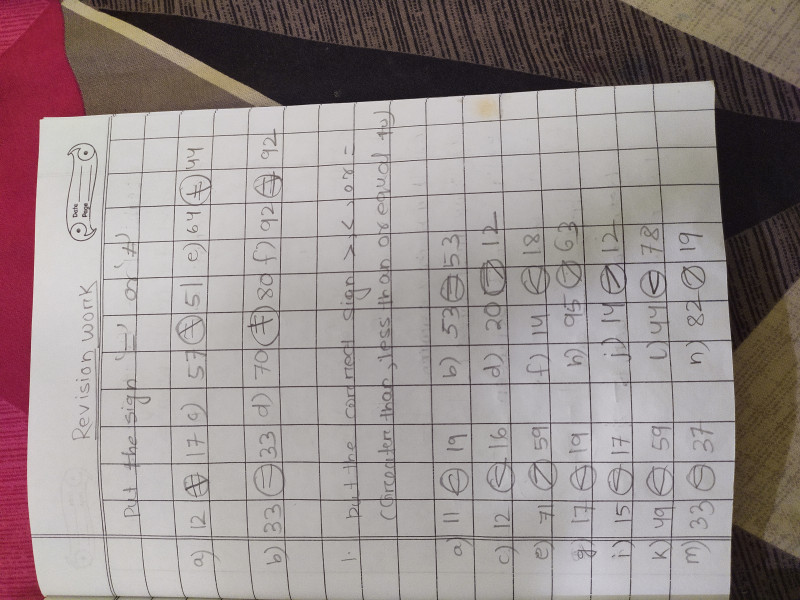 Date
Page
Revision work
Put the sign '=' or '≠'
a) 12 ≠ 17 c) 57 ≠ 51 e) 64 ≠ 44
b) 33 = 33 d) 70 ≠ 80 f) 92 ≠ 92
1. put the corrred sign >,<, or =
(Greater than, less than or equal to)
a) 11 < 19 b) 53 = 53
c) 12 < 16 d) 20 > 12
e) 71 > 59 f) 14 < 18
g) 17 < 19 h) 95 > 63
i) 15 < 17 j) 14 > 12
k) 49 < 59 l) 44 < 78
m) 33 < 37 n) 82 > 19